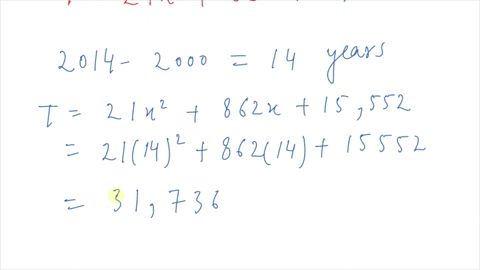 2014 - 2000 = 14 years
T = 21x² + 862x + 15,552
= 21(14)² + 862(14) + 15552
= 31,736